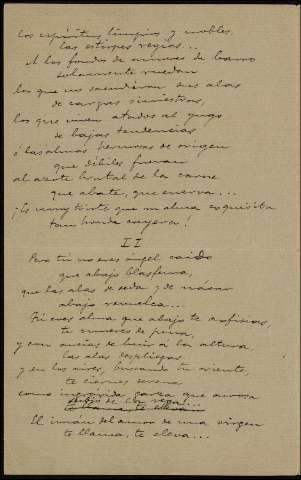 los espíritus limpios y nobles,
las estirpes regias...
A los fondos de mineros de barro
solamente ruedan
los que no sacudieron sus alas
de cargas siniestras,
los que viven atados al yugo
de bajas tendencias
ó las almas hermosas de origen
que débiles fueran
al azote brutal de la carne
que abate, que enerva...
¡Es muy triste que un alma exquisita
tan honda cayera!
II
Pero tú no eres ángel caido
que abajo blasfema,
que las alas de seda y de nácar
abajo
Tú eres alma que abajo te asfixias,
te mueres de pena,
y con ansias de huir á la altura
las alas despliegas,
y en los aires, buscando tu oriente,
te ciernes serena
como garza que
te llama, te eleva...
El imán del amor de una virgen
te llama, te eleva...